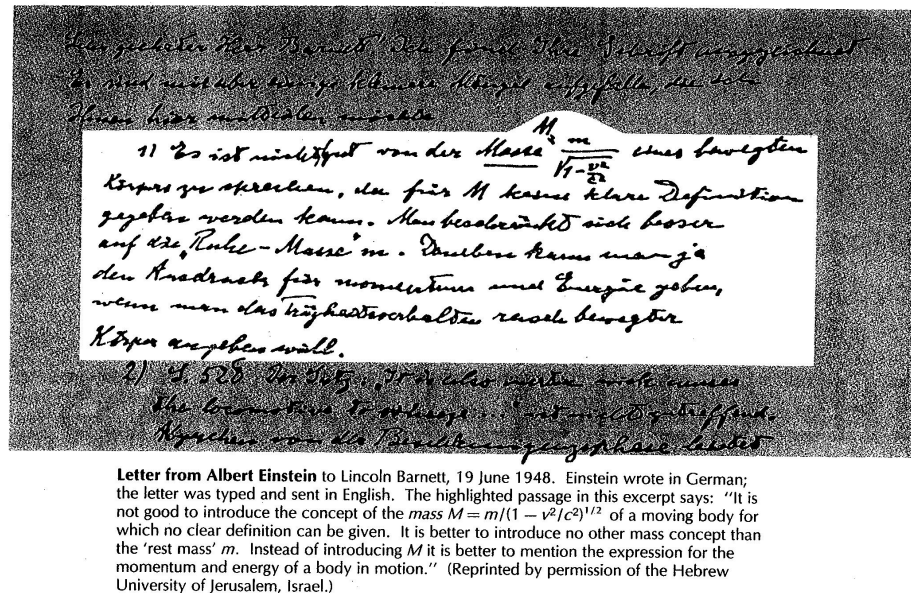 Sehr geehrter Herr Barnett! Ich fand Ihre Schrift ausgezeichnet
Es sind mir aber einige kleinere Mängel aufgefallen, die ich
Ihnen hier mitteilen möchte
1) Es ist nicht gut von der Masse M = m/√(1-v²/c²) eines bewegten
Körpers zu sprechen, da für M keine klare Definition
gegeben werden kann. Man beschränkt sich besser
auf die „Ruhe-Masse" m. Daneben kann man ja
den Ausdruck für momentum und Energie geben,
wenn man das Trägheitsverhalten rasch bewegter
Körper angeben will.
2) S. 528 Der Satz
the locomotive to nicht zutreffend.
Abgesehen von der Beschleunigungsphase leistet
Letter from Albert Einstein to Lincoln Barnett, 19 June 1948. Einstein wrote in German;
the letter was typed and sent in English. The highlighted passage in this excerpt says: "It is
not good to introduce the concept of the mass M = m/(1 − v²/c²)¹/² of a moving body for
which no clear definition can be given. It is better to introduce no other mass concept than
the 'rest mass' m. Instead of introducing M it is better to mention the expression for the
momentum and energy of a body in motion." (Reprinted by permission of the Hebrew
University of Jerusalem, Israel.)